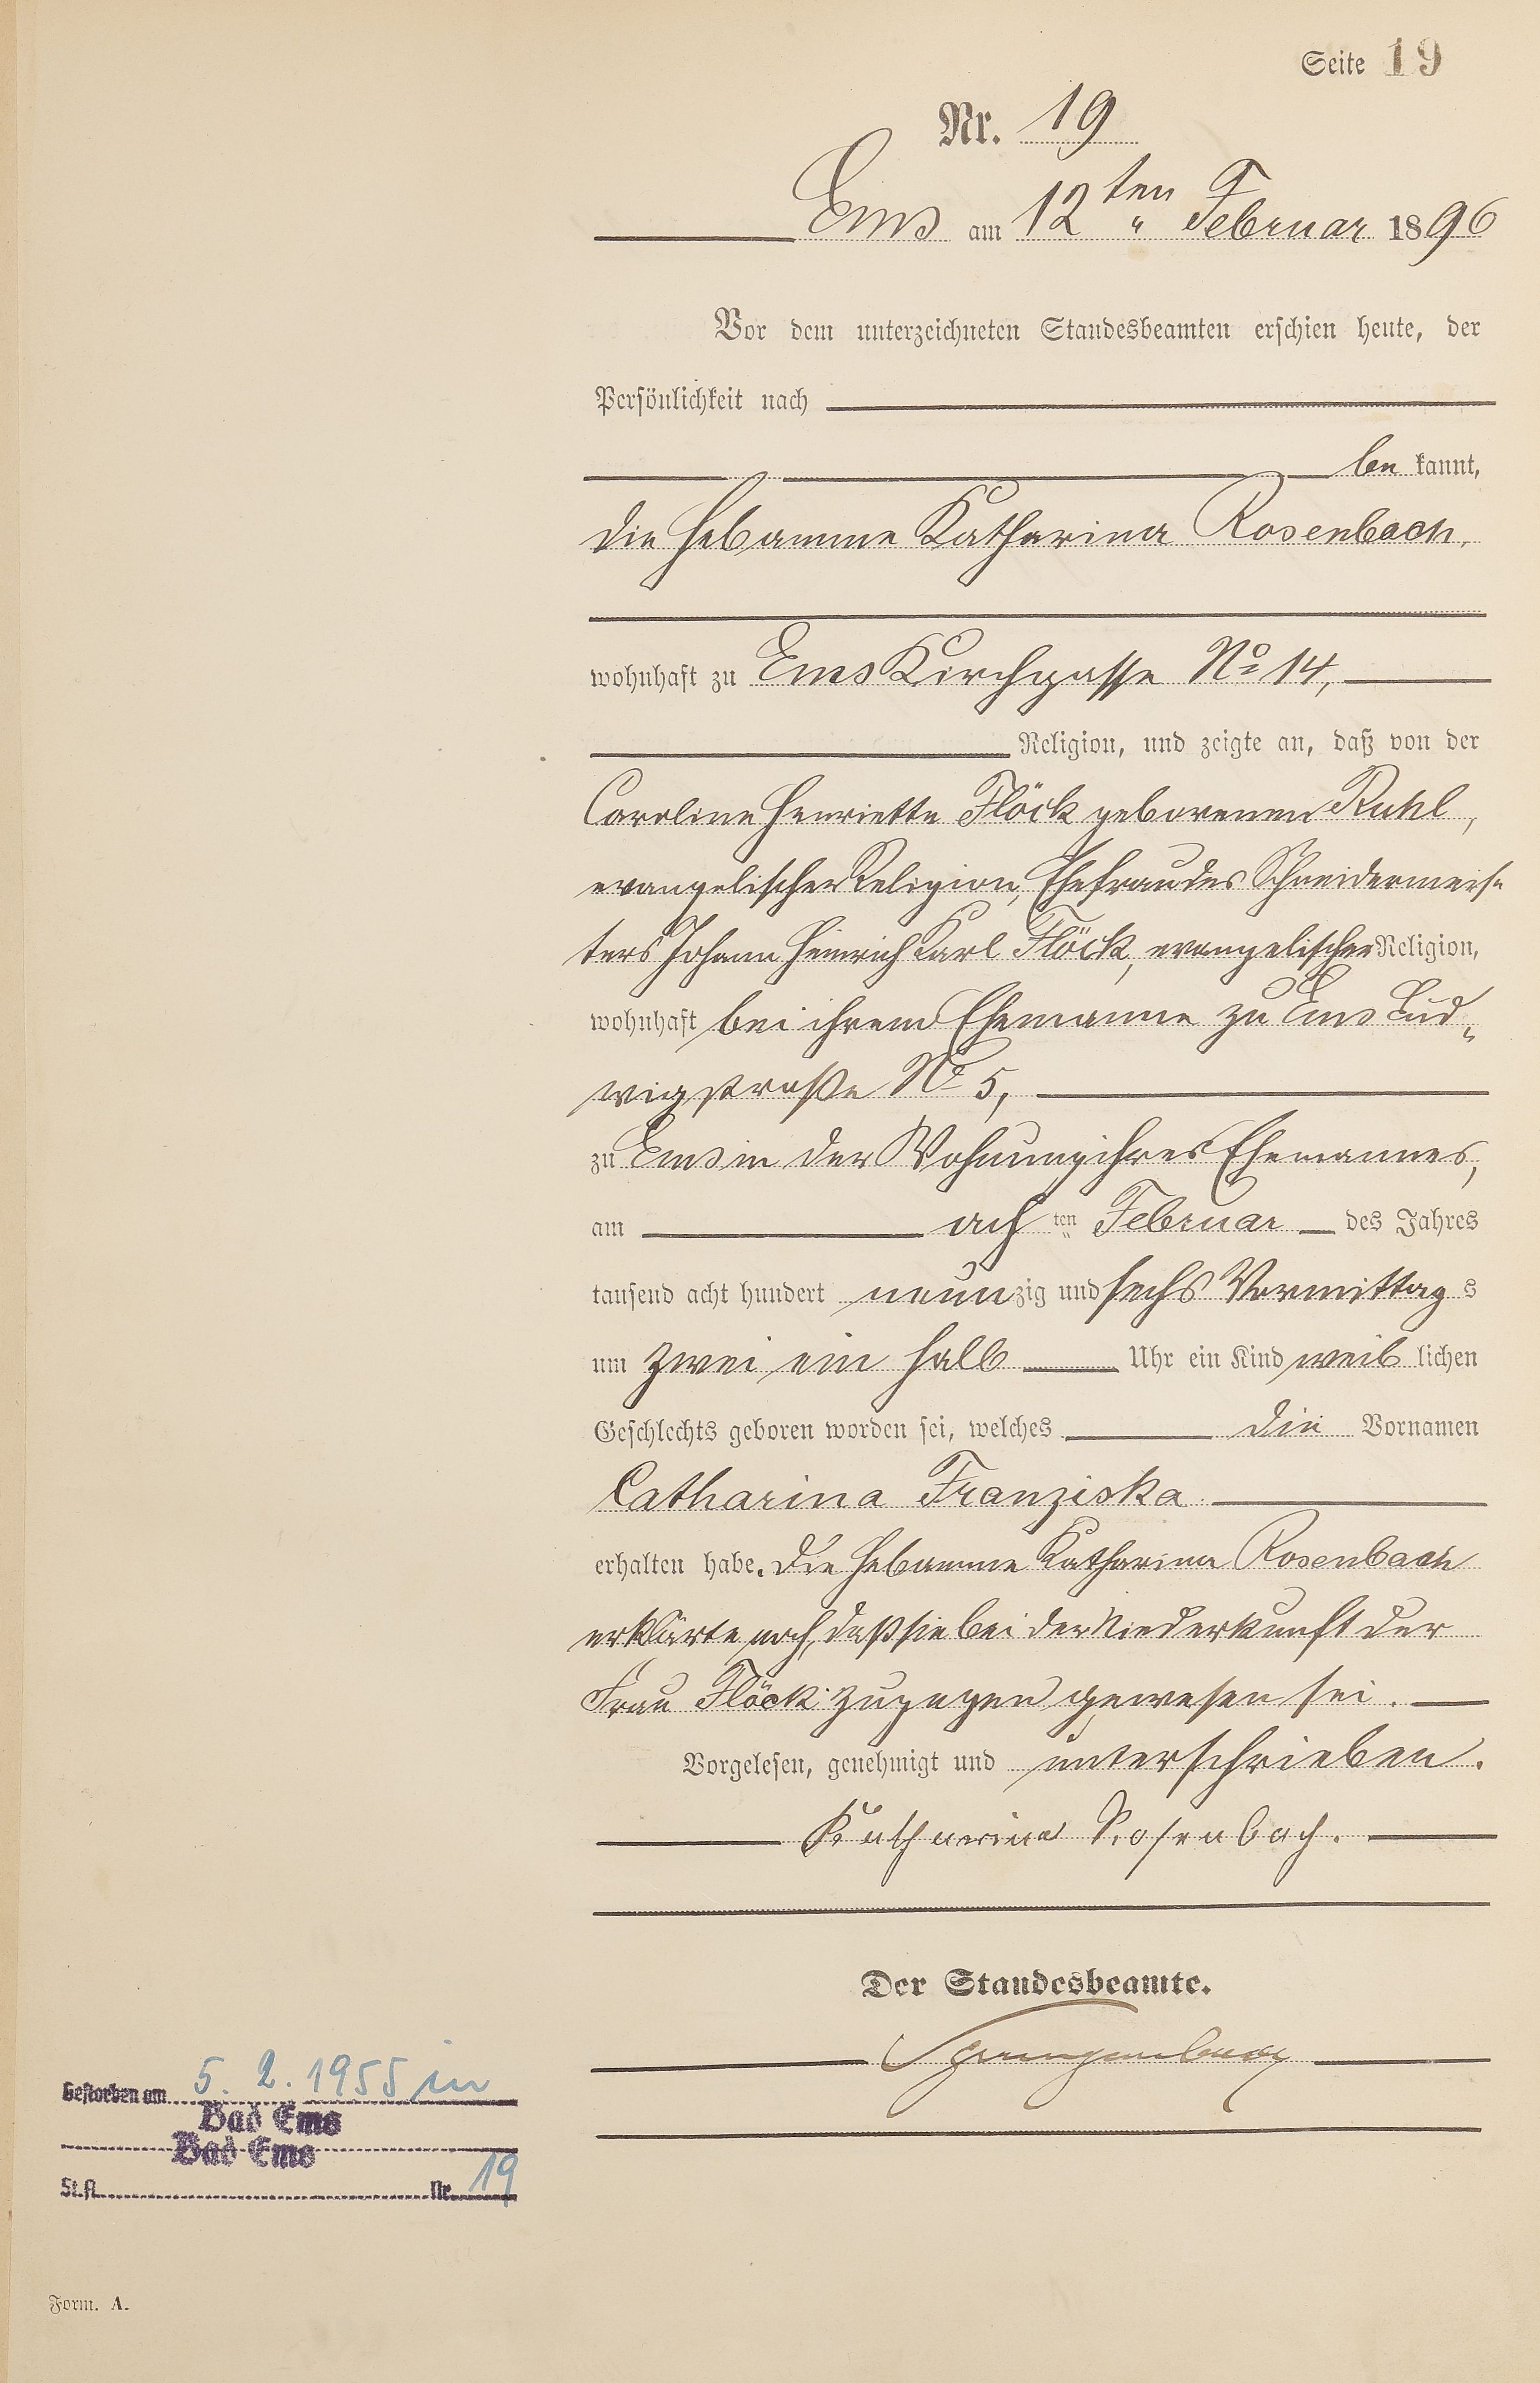 Seite 19
Nr. 19
Ems am 12ten „ Februar 1896
Vor dem unterzeichneten Standesbeamten erschien heute, der
Persönlichkeit nach
be kannt,
die Hebamme Katharina Rosenbach,
wohnhaft zu Ems Kirchgasse No 14,
Religion, und zeigte an, daß von der
Caroline Henriette Flöck geborenen Ruhl,
evangelischer Religion, Ehefrau des Schneidermeis„
ters Johann Heinrich Karl Flöck, evangelischer Religion,
wohnhaft bei ihrem Ehemanne zu Ems Lud„
wigstraße No 5,
zu Ems in der Wohnung ihres Ehemannes,
am ach ten Februar des Jahres
tausend acht hundert neun zig und sechs Vormittag s
um zwei ein halb Uhr ein Kind weib lichen
Geschlechts geboren worden sei, welches die Vornamen
Catharina Franziska
erhalten habe. Die Hebamme Katharina Rosenbach
erklärte noch, daß sie bei der Niederkunft der
Frau Flöck zugegen gewesen sei.
Vorgelesen, genehmigt und unterschrieben.
Katharina Rosenbach.
Der Standesbeamte.
Gestorben am 5. 2. 1955 in
Bad Ems
Bad Ems
St.A. Nr. 19
Form. A.